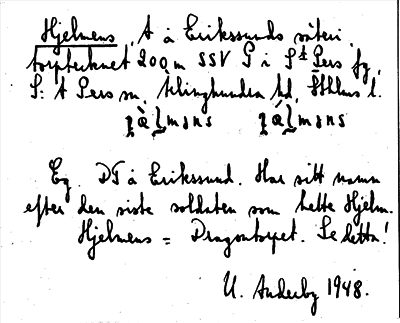 Hjelmens, t å Erikssunds säteri,
torptecknet 200 m SSV G i St Pers fg,
S:t Pers sn, Håbunda hd, Sthlms l.
Eg. DT å Erikssund. Har sitt namn
efter den siste soldaten som hette Hjelm.
Hjelmens = Dragontorpet. Se detta!
U. Anderby 1948.